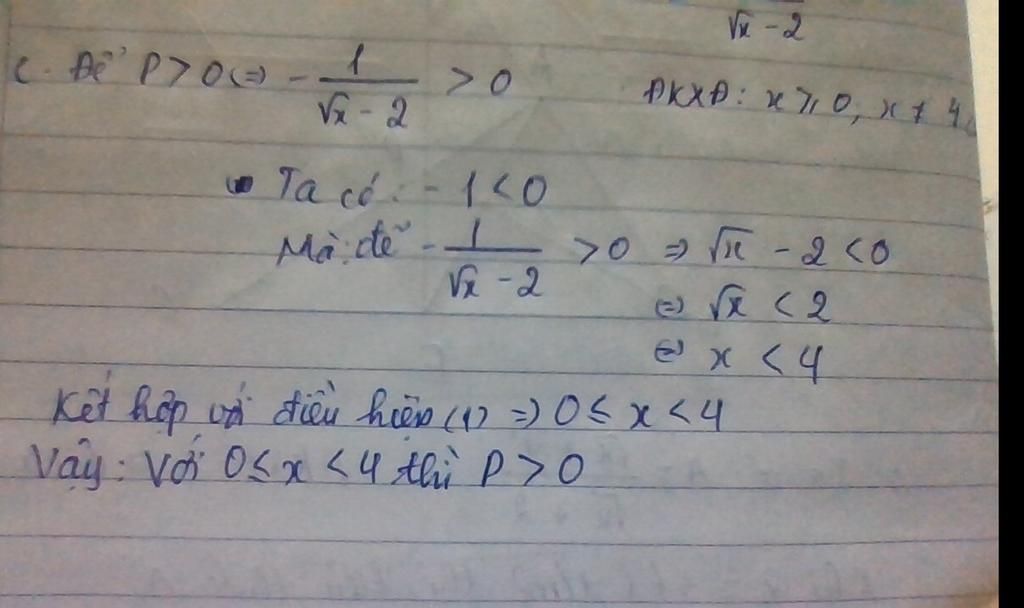 √x - 2
c. Để P > 0 (=) - 1/(√x - 2) > 0 ĐKXĐ: x ⩾ 0, x ≠ 4
Ta có: - 1 < 0
Mà: để - 1/(√x - 2) > 0 => √x - 2 < 0
(=) √x < 2
(=) x < 4
Kết hợp với điều kiện (1) => 0 ≤ x < 4
Vậy: Với 0 ≤ x < 4 thì P > 0